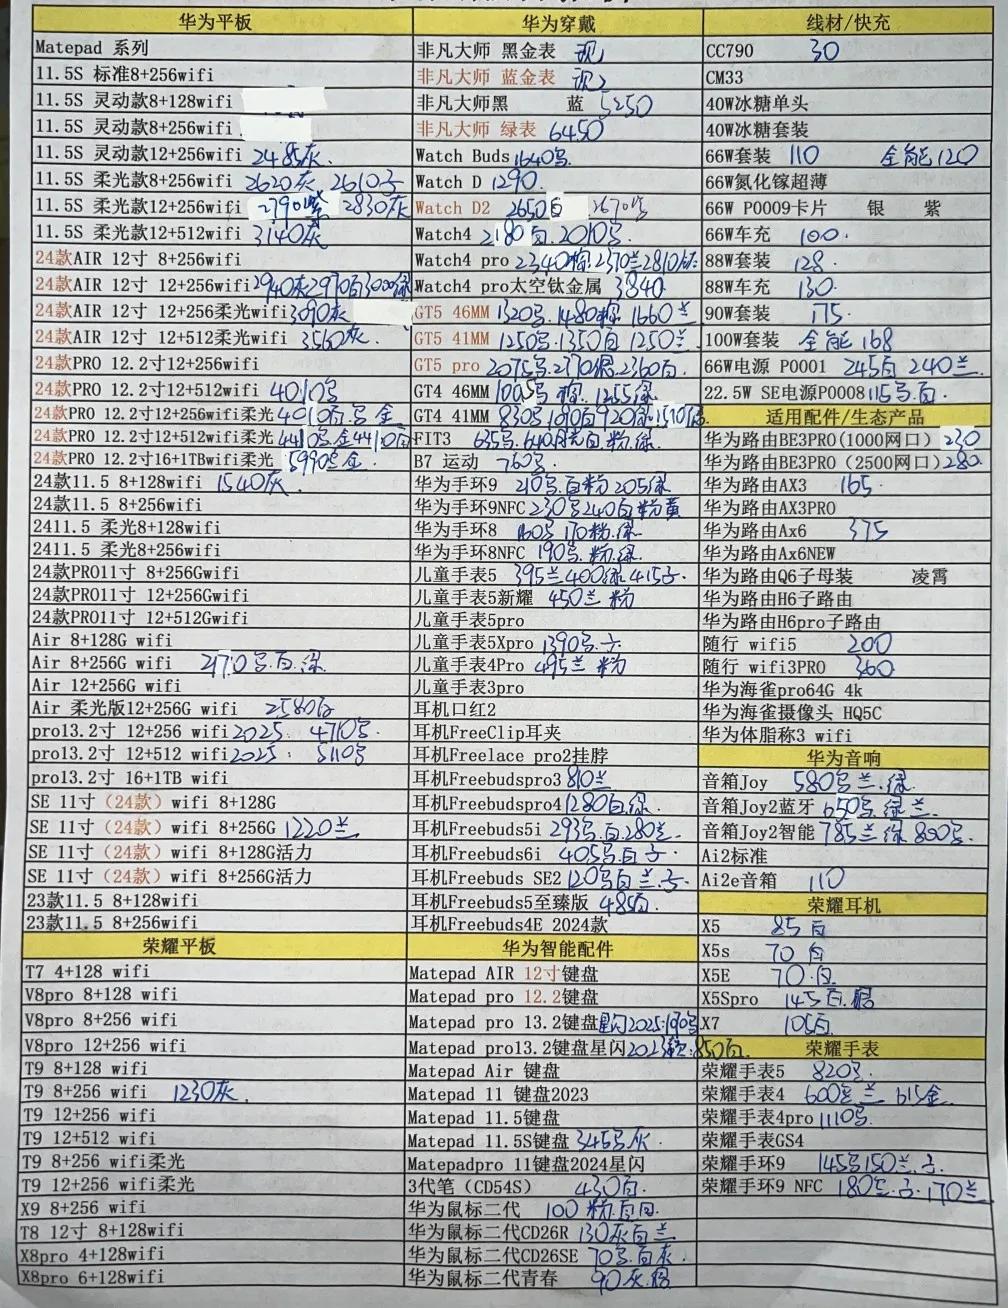 华为平板
Matepad 系列
11.5S 标准8+256wifi
11.5S 灵动款8+128wifi
11.5S 灵动款8+256wifi
11.5S 灵动款12+256wifi 2485灰.
11.5S 柔光款8+256wifi 2620灰 2610子
11.5S 柔光款12+256wifi 2790 2830灰
11.5S 柔光款12+512wifi 3140灰
24款AIR 12寸 8+256wifi
24款AIR 12寸 12+256wifi 2940灰2970白3000绿
24款AIR 12寸 12+256柔光wifi 3090灰
24款AIR 12寸 12+512柔光wifi 3560灰.
24款PRO 12.2寸12+256wifi
24款PRO 12.2寸12+512wifi 4010号
24款PRO 12.2寸12+256wifi柔光 4010白号金
24款PRO 12.2寸12+512wifi柔光 4410号金4410白
24款PRO 12.2寸16+1TBwifi柔光 5990号金.
24款11.5 8+128wifi 1540灰.
24款11.5 8+256wifi
2411.5 柔光8+128wifi
2411.5 柔光8+256wifi
24款PRO11寸 8+256Gwifi
24款PRO11寸 12+256Gwifi
24款PRO11寸 12+512Gwifi
Air 8+128G wifi
Air 8+256G wifi 2170号.白.绿
Air 12+256G wifi
Air 柔光版12+256G wifi 2580白
pro13.2寸 12+256 wifi 2025: 4710号
pro13.2寸 12+512 wifi 2025: 5110号
pro13.2寸 16+1TB wifi
SE 11寸（24款）wifi 8+128G
SE 11寸（24款）wifi 8+256G 1220兰
SE 11寸（24款）wifi 8+128G活力
SE 11寸（24款）wifi 8+256G活力
23款11.5 8+128wifi
23款11.5 8+256wifi
荣耀平板
T7 4+128 wifi
V8pro 8+128 wifi
V8pro 8+256 wifi
V8pro 12+256 wifi
T9 8+128 wifi
T9 8+256 wifi 1230灰.
T9 12+256 wifi
T9 12+512 wifi
T9 8+256 wifi柔光
T9 12+256 wifi柔光
X9 8+256 wifi
T8 12寸 8+128wifi
X8pro 4+128wifi
X8pro 6+128wifi
华为穿戴
非凡大师 黑金表 现1
非凡大师 蓝金表 现2
非凡大师黑 蓝 5250
非凡大师 绿表 6450
Watch Buds 1640号
Watch D 1290.
Watch D2 2650白 2670
Watch4 2180白.2010号.
Watch4 pro 2340棕.2370兰2810钛
Watch4 pro太空钛金属 3840.
GT5 46MM 1320号.1480棕 1660兰
GT5 41MM 1250号.1350白 1250兰
GT5 pro 2075号.2170棕.2360白.
GT4 46MM 1005号 棕. 1255绿
GT4 41MM 830号 1080白 920绿.1570银
FIT3 635号.640月光白 粉.绿.
B7 运动 760号
华为手环9 210号.白粉 205绿
华为手环9NFC 230号240白粉黄
华为手环8 160号 170粉.绿.
华为手环8NFC 190号.粉.绿.
儿童手表5 395兰400绿 415子.
儿童手表5新耀 450兰 粉
儿童手表5pro
儿童手表5Xpro 1390号.子.
儿童手表4Pro 495兰 粉
儿童手表3pro
耳机口红2
耳机FreeClip耳夹
耳机Freelace pro2挂脖
耳机Freebudspro3 810兰
耳机Freebudspro4 1280白.绿.
耳机Freebuds5i 293号.白.280兰.
耳机Freebuds6i 405号.白子.
耳机Freebuds SE2 120号白兰.子.
耳机Freebuds5至臻版 485白.
耳机Freebuds4E 2024款
华为智能配件
Matepad AIR 12寸键盘
Matepad pro 12.2键盘
Matepad pro 13.2键盘 星闪2025.1190号
Matepad pro13.2键盘星闪 2023款:850白.
Matepad Air 键盘
Matepad 11 键盘2023
Matepad 11.5键盘
Matepad 11.5S键盘 345号灰.
Matepadpro 11键盘2024星闪
3代笔（CD54S） 430白.
华为鼠标二代 100 粉白
华为鼠标二代CD26R 130灰白兰
华为鼠标二代CD26SE 70号.白灰.
华为鼠标二代青春 90灰.棕
线材/快充
CC790 30
CM33
40W冰糖单头
40W冰糖套装
66W套装 110 全能120
66W氮化镓超薄
66W P0009卡片 银 紫
66W车充 100.
88W套装 128.
88W车充 130.
90W套装 175.
100W套装 全能168
66W电源 P0001 245白 240兰.
22.5W SE电源P0008 115号.白.
适用配件/生态产品
华为路由BE3PRO(1000网口) 230
华为路由BE3PRO（2500网口) 280.
华为路由AX3 165.
华为路由AX3PRO
华为路由Ax6 375
华为路由Ax6NEW
华为路由Q6子母装 凌霄
华为路由H6子路由
华为路由H6pro子路由
随行 wifi5 200
随行 wifi3PRO 360
华为海雀pro64G 4k
华为海雀摄像头 HQ5C
华为体脂称3 wifi
华为音响
音箱Joy 580号兰.绿.
音箱Joy2蓝牙 650号.绿兰.
音箱Joy2智能 785兰绿800号.
Ai2标准
Ai2e音箱 110
荣耀耳机
X5 85白
X5s 70白
X5E 70.白.
X5Spro 145白.棕
X7 105白.
荣耀手表
荣耀手表5 820号.
荣耀手表4 600号兰 615金.
荣耀手表4pro 1110号.
荣耀手表GS4
荣耀手环9 145号150兰.子.
荣耀手环9 NFC 180号.子.170兰